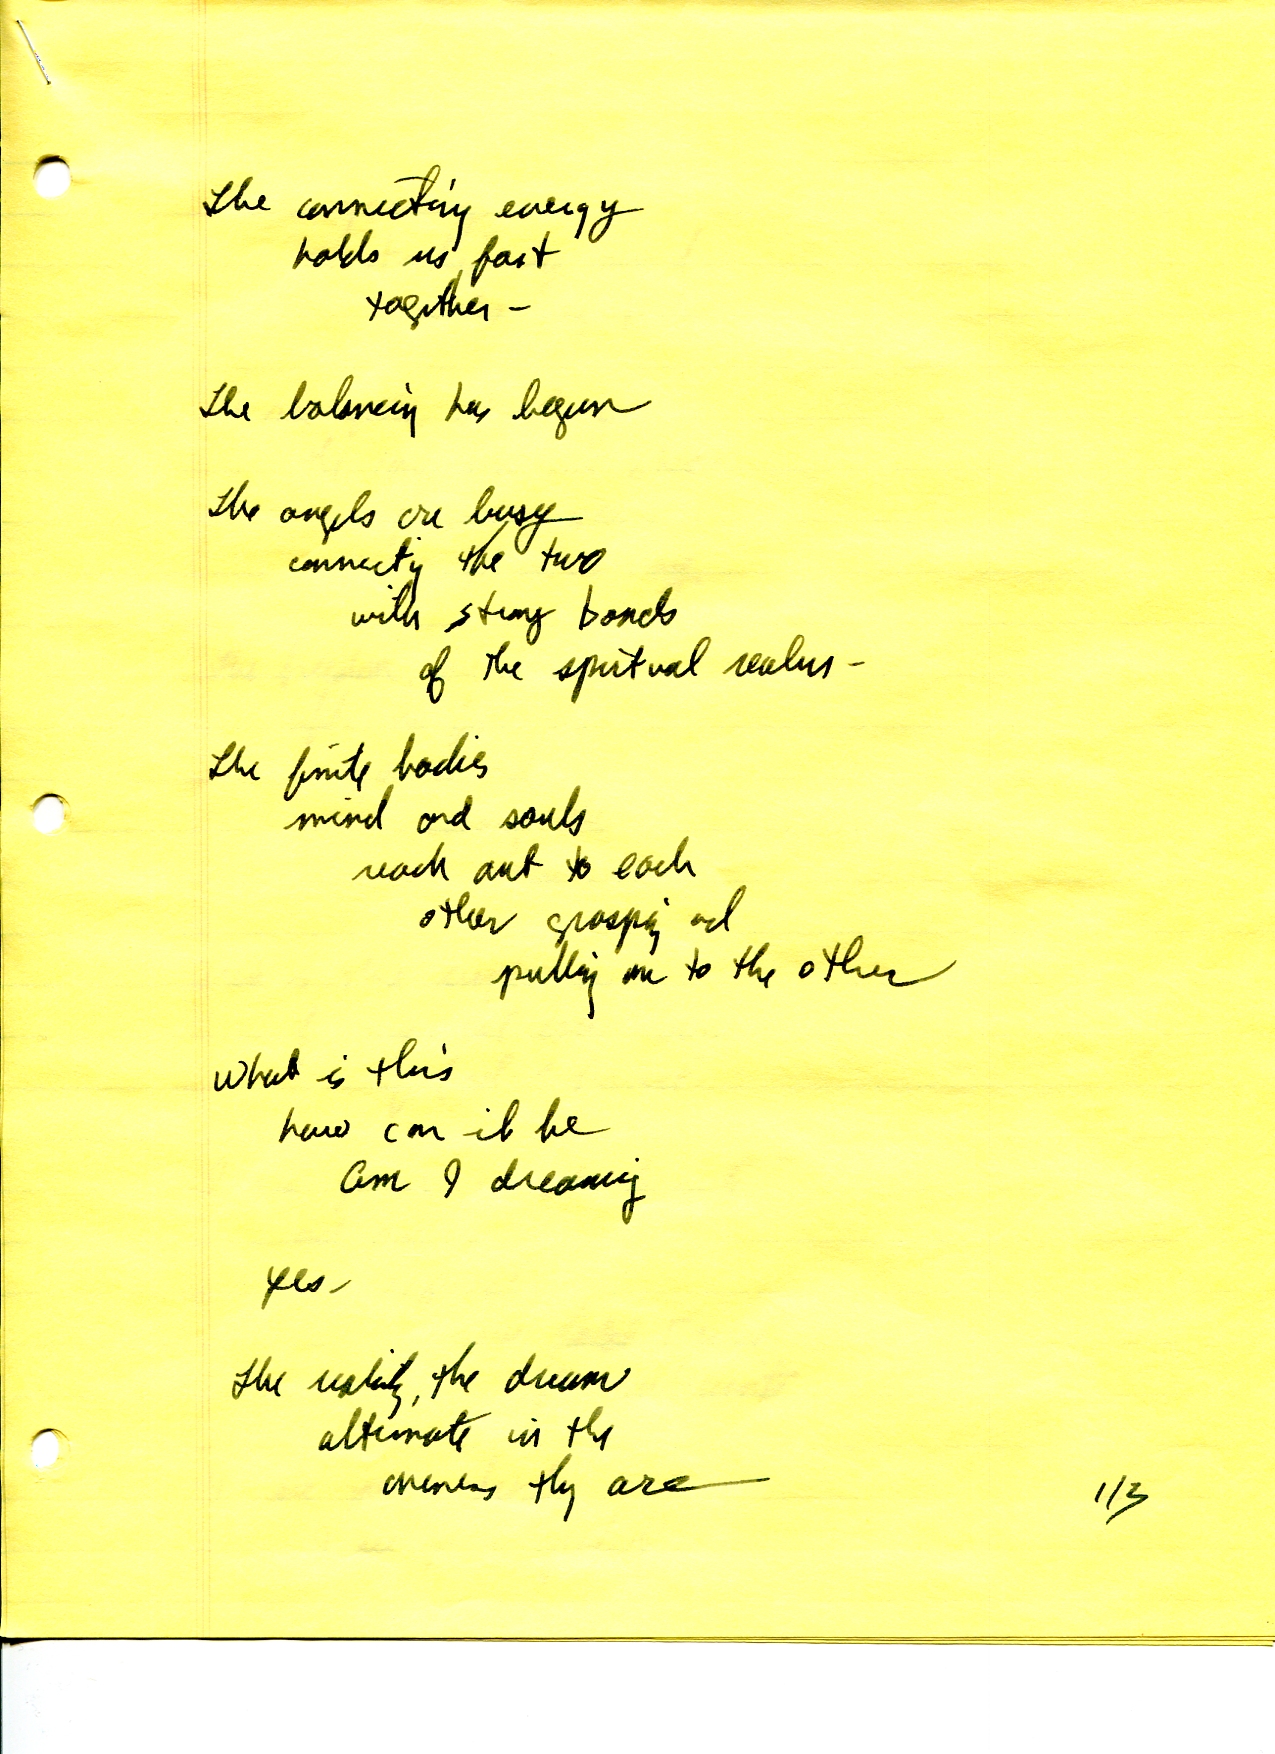 The connecting energy
holds us fast
together -
The balancing has begun
The angels are busy
connecting the two
with strong bonds
of the spiritual realms -
The finite bodies
mind and souls
reach out to each
other grasping and
pulling one to the other
What is this
how can it be
Am I dreaming
yes -
The reality, the dream
alternate in the
oneness they are
1/3